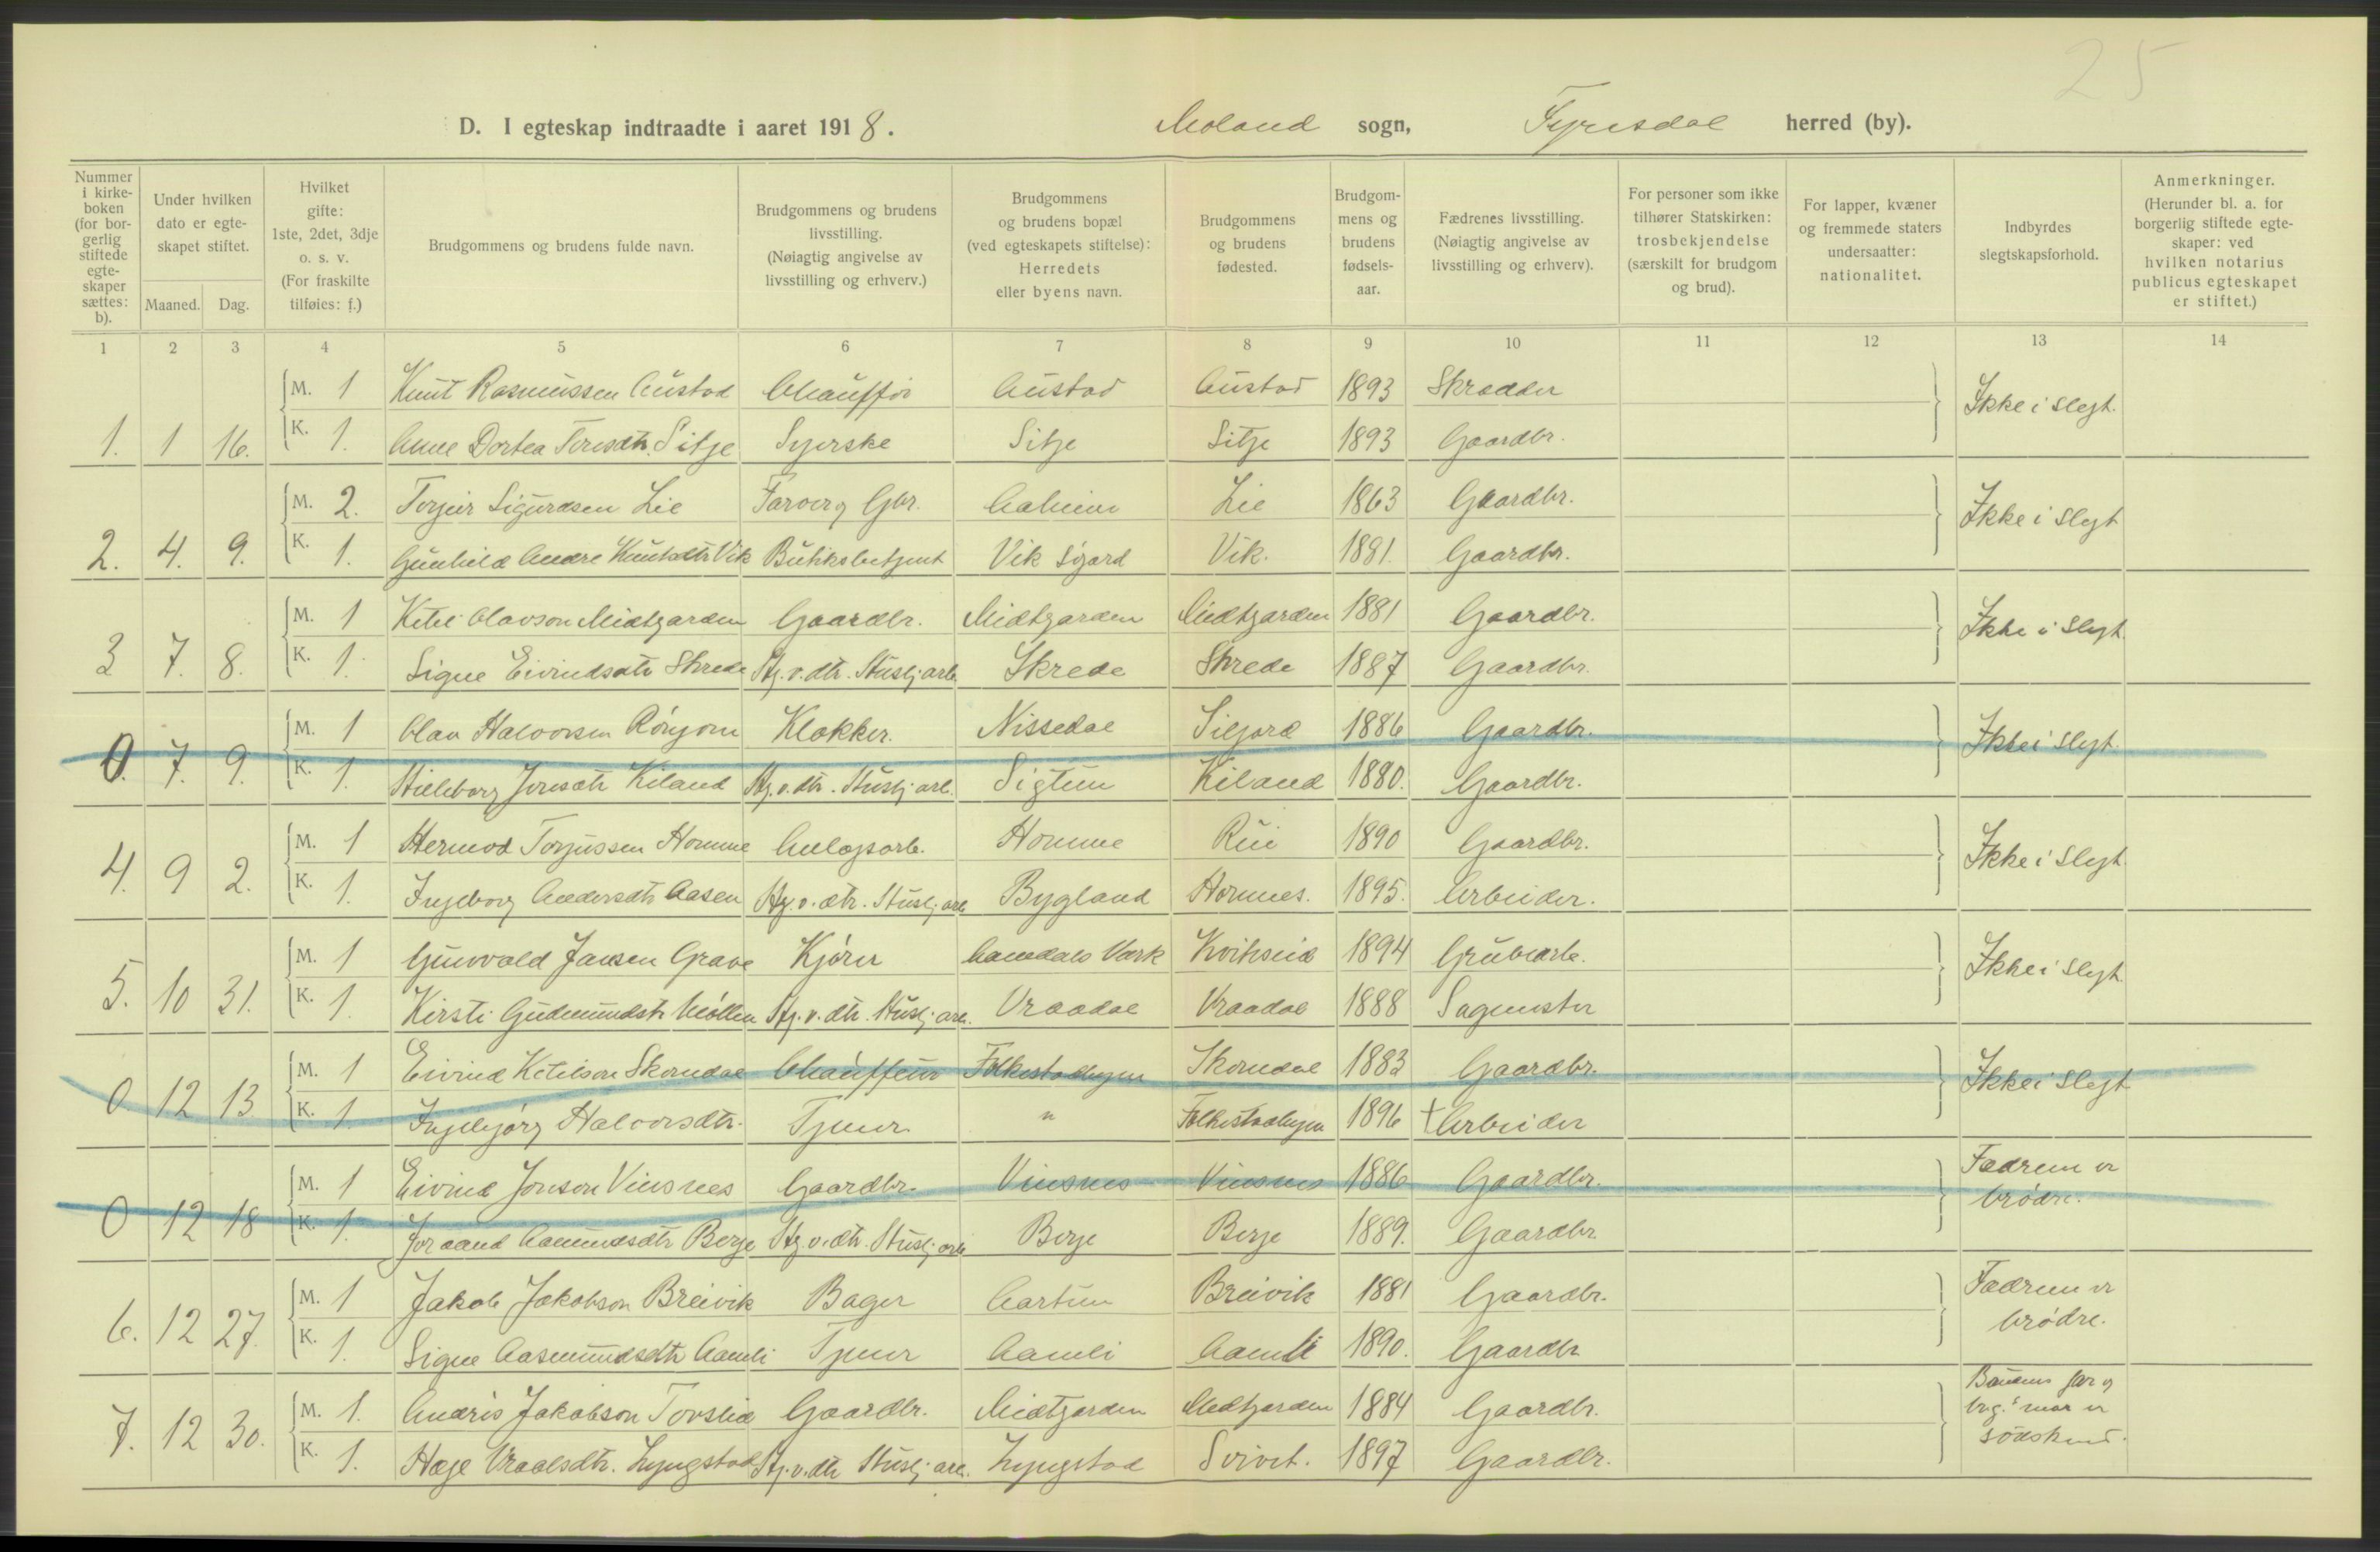 25
D. I egteskap indtraadte i aaret 1918. Moland sogn, Fyresdal herred (by).
Nummer i kirkeboken (for borgerlig stiftede egteskaper sættes: b).
Under hvilken dato er egteskapet stiftet.
Maaned. Dag.
Hvilket gifte: 1ste, 2det, 3dje o. s. v. (For fraskilte tilføies: f.)
Brudgommens og brudens fulde navn.
Brudgommens og brudens livsstilling. (Nøiagtig angivelse av livsstilling og erhverv.)
Brudgommens og brudens bopæl (ved egteskapets stiftelse): Herredets eller byens navn.
Brudgommens og brudens fødested.
Brudgommens og brudens fødselsaar.
Fædrenes livsstilling. (Nøiagtig angivelse av livsstilling og erhverv).
For personer som ikke tilhører Statskirken: trosbekjendelse (særskilt for brudgom og brud).
For lapper, kvæner og fremmede staters undersaatter: nationalitet.
Indbyrdes slegtskapsforhold.
Anmerkninger. (Herunder bl. a. for borgerlig stiftede egteskaper: ved hvilken notarius publicus egteskapet er stiftet.)
1 2 3 4 5 6 7 8 9 10 11 12 13 14
M. 1 Knut Rasmussen Austad Chauffør Austad Austad 1893 Skrædder Ikke i slegt.
1. 1 16. K. 1. Anne Dortea Sitje Syerske Sitje Sitje 1893 Gaardbr.
M. 2. Torjeir Sigurdsen Lie Farver og Gbr. Lie 1863 Gaardbr. Ikke i slegt
2. 4. 9. K. 1. Gunhild Andre Knutsdtr Vik Butiksbetjent Vik Vik. 1891. Gaardbr.
M. 1 Ketil Olavson Midtgarden Gaardbr. Midtgarden Midtgarden 1881 Gaardbr. Ikke i slegt
3 7. 8. K. 1. Signe Eivindsdtr Skrede Hj. v. dtr. Huslj. arb. Skrede Skrede 1887 Gaardbr.
M. 1 Olav Halvorsen Klokker. Nissedal Siljord 1886 Gaardbr. Ikke i slegt.
0. 7. 9. K. 1. Hæleborg Jonsdtr Kiland Hj. v. dtr. Huslj. arb. Sigtun Kiland 1880. Gaardbr.
M. 1 Hermod Torjussen Homme Anlegsarb. Homme Rui 1890 Gaardbr. Ikke i slegt
4. 9 2. K. 1. Ingeborg Andersdtr Aasen Hj. v. dtr. Huslj. arb Bygland Hornnes. 1895. Arbeider.
M. 1 Gunvald Jansen Grave Kjører Aamdals Værk Kviteseid 1894 Grubearb. Ikke i slegt
5. 10 31. K. 1. Kirsti Gudmundsdtr Møllen Hj. v. dtr. Huslj. arb. Vraadal Vraadal 1888 Sagmester
M. 1 Eivind Ketilson Skomdal Chauffeur Folkestadbyen Skomdal 1883 Gaardbr. Ikke i slegt
0 12 13 K. 1. Ingebjørg Halvorsdtr. Tjener " Folkestadbyen 1896 † Arbeider
M. 1 Eivind Jonson Vinsnes Gaardbr. Vinsnes Vinsnes 1886 Gaardbr. Fædrene er
0 12 18 K. 1. Joraand Aamundsdtr Berge Hj. v. dtr. Huslj. arb Berge Berge 1889. Gaardbr brødre.
M. 1 Jakob Jakobson Breivik Bager Aartun Breivik 1881 Gaardbr. Fædrene er
6. 12 27. K. 1. Signe Aasmundsdtr Aamli Tjener Aamli Aamli 1890. Gaardbr brødre.
M. 1. Andris Jakobson Torslid Gaardbr. Midtgarden Midtgarden 1884 Gaardbr. Brudens far og brg.s mor er
7. 12 30. K. 1. Hæge Vraalsdtr. Lyngstad Hj. v. dtr Huslj. arb. Lyngstad 1897 Gaardbr. søskend.